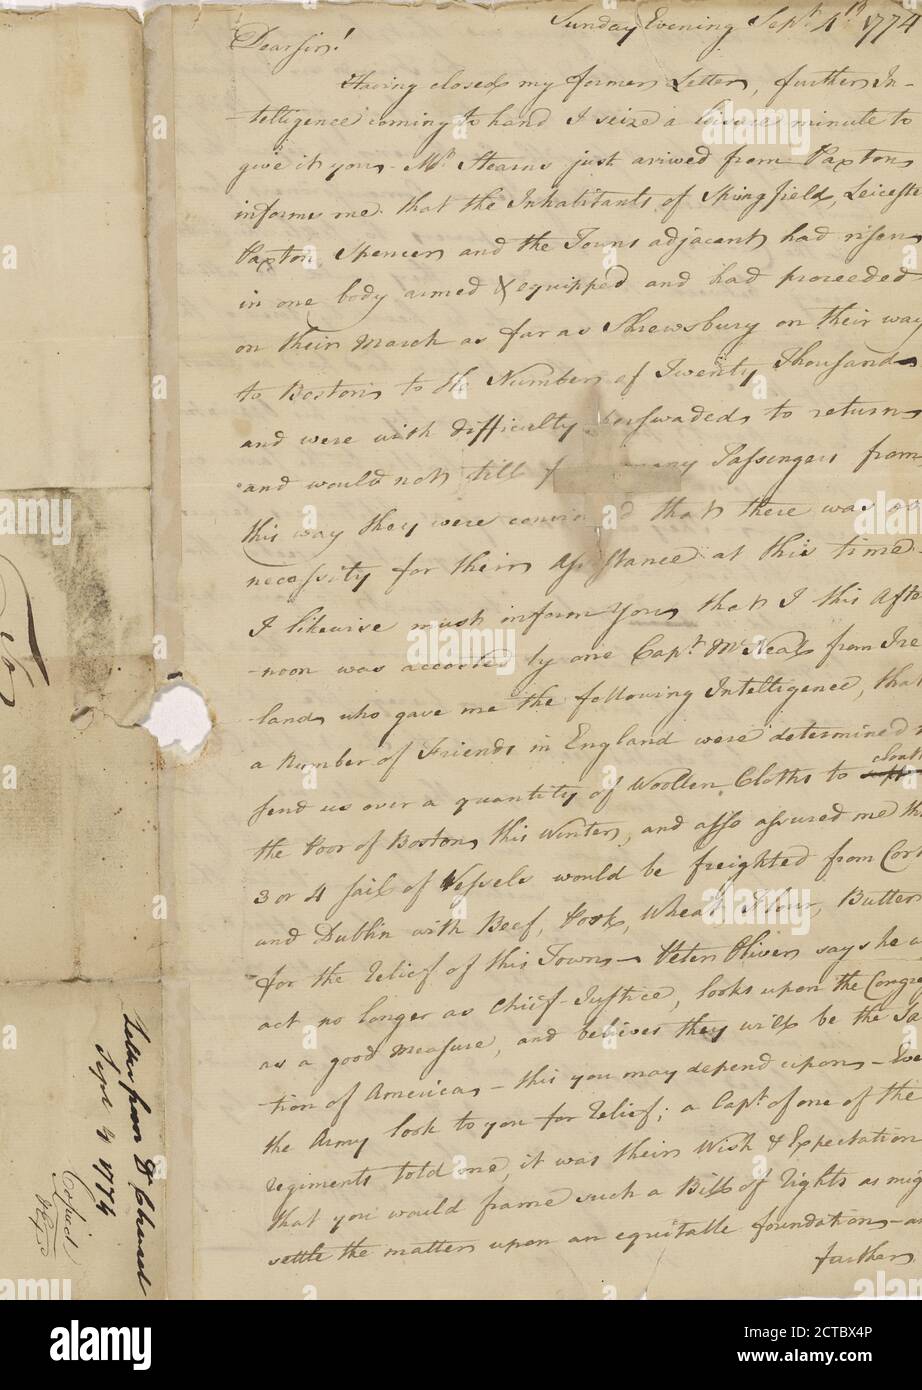 Sunday Evening Sepr. 4th 1774
Dear sir!
Having closed my former Letter, further In-
-telligence coming to hand I seize a leisure minute to
give it you - Mr. Stearns just arived from Paxton
informs me that the Inhabitants of Springfield, Leiceste
Paxton, Spencer and the Towns adjacent had risen
in one body armed & equipped and had proceeded
on their March as far as Shrewsbury on their way
to Boston to the Number of Twenty Thousand
and were with difficulty perswaded to return
and would not till many Passengers from
this way they were convin d that there was no
necessity for their Assistance at this time -
I likewise must inform You that I this After
-noon was accosted by one Capt. McNeal from Ire
-land, who gave me the following Intelligence, that
a Number of Friends in England were determined
send us over a quantity of Woollen Cloths to cloath
the Poor of Boston this Winter, and also assured me th
3 or 4 sail of Vessels would be freighted from Cork
and Dublin with Beef, Pork, Wheat Flour, Butter
for the relief of this Town - Peter Oliver says he w
act no longer as Chief-Justice, looks upon the Congre
as a good Measure, and believes they will be the Sa
-tion of America - this you may depend upon - Eve
the Army look to you for relief; a Capt. of one of the
regiments told me, it was their Wish & Expectation
that you would frame such a Bill of rights as mig
settle the matter upon an equitable foundation - an
further
Letter from Dr. Chancel
Sept 4 1774
alamy
alamy
alamy
Image ID: 2CTBX4P
www.alamy.com